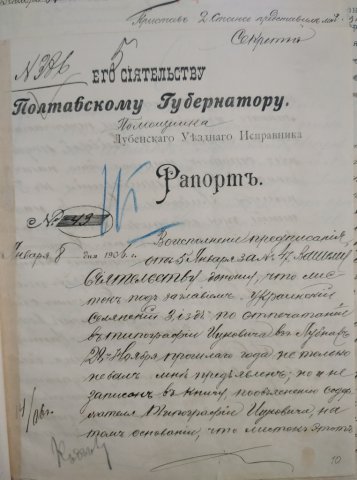 Приставъ 2 Стана представилъ
Секретно
№ 386
5
ЕГО СІЯТЕЛЬСТВУ
Полтавскому Губернатору.
Помощника
Лубенскаго Уѣзднаго Исправника
Рапортъ.
№ 49
Января 8 дня 1906 г.
Во исполненіе предписанія,
отъ 5 Января за № 42 Вашему
Сіятельству доношу, что лис-
токъ подъ заглавіемъ „Украинскій
Селянскій Зʼіздъ" по отпечатаніи
въ типографіи Цуковича въ Лубнахъ
29 Ноября прошлаго года не только
не былъ мнѣ предъявленъ, но и не
записанъ въ книгу, по объясненію содер-
жателя типографіи Цуковича, на
томъ основаніи, что листокъ этотъ
10